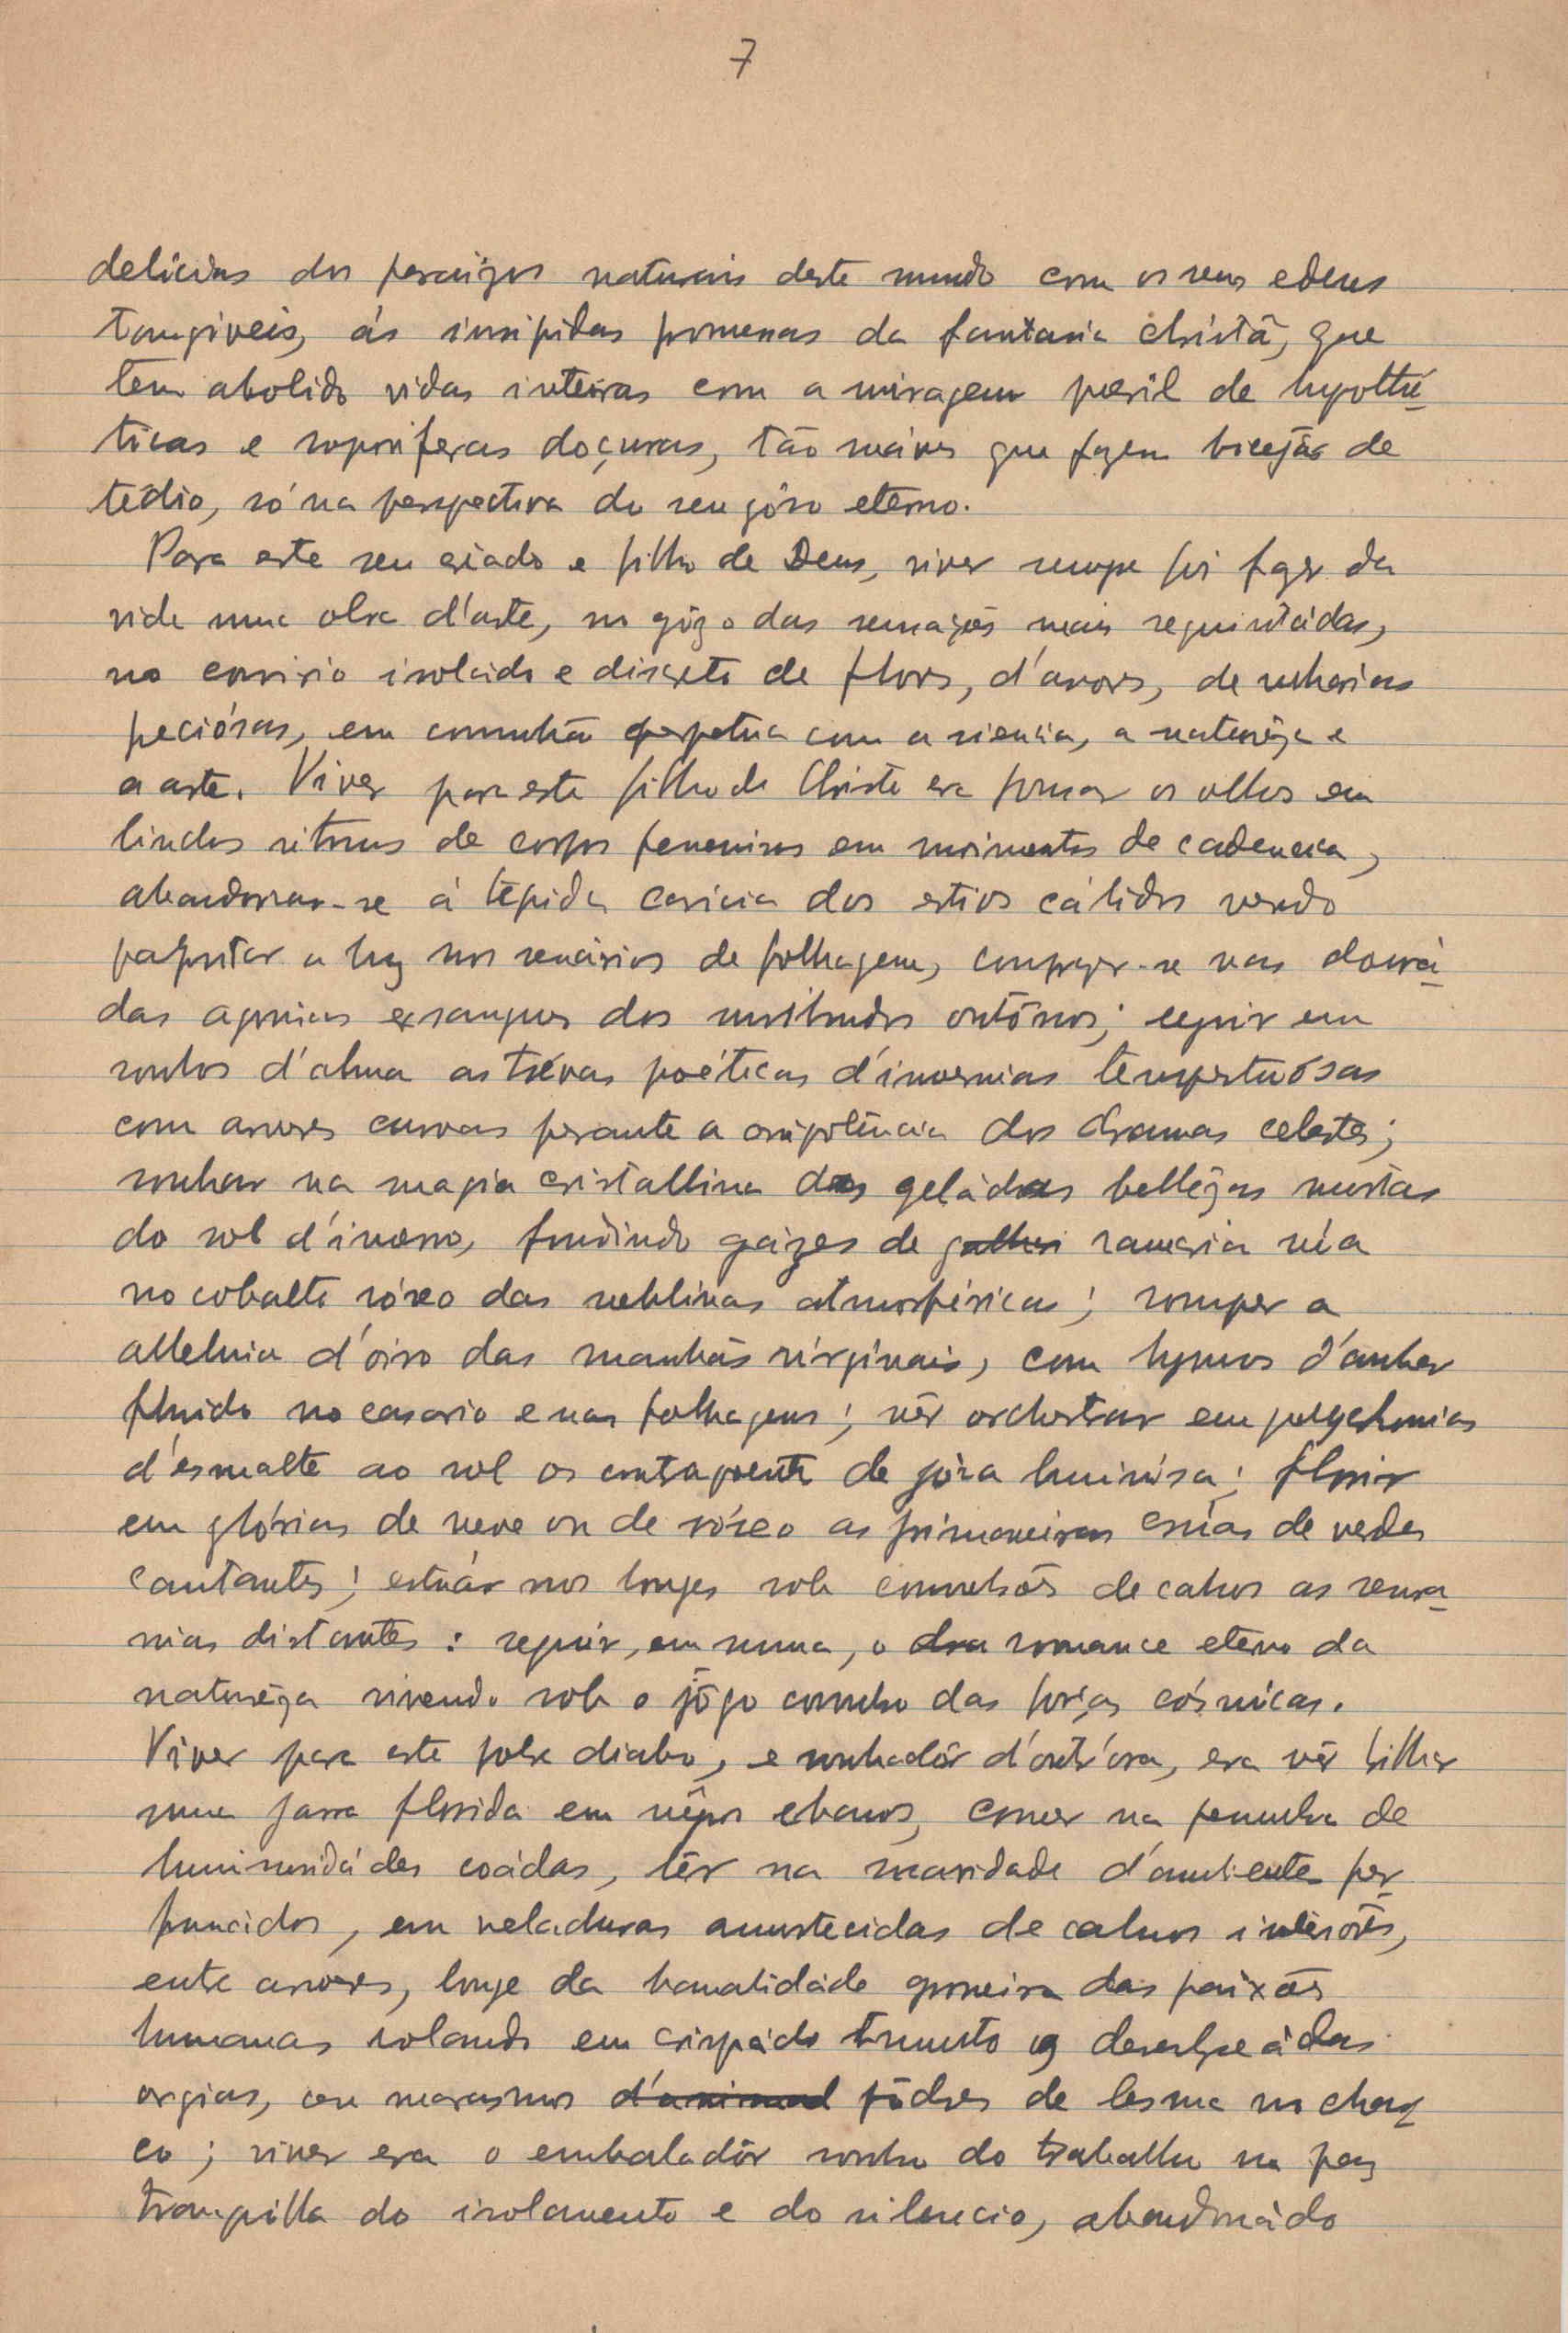 7
delicias dos paraizos naturais deste mundo com os seus edens
tangiveis, ás insipidas promessas da fantasia christã, que
tem abolido vidas inteiras com a miragem pueril de hypothé-
ticas e soporiferas doçuras, tão suáves que fazem bocejár de
tédio, só na perspectiva do seu gôso eterno.
Para este seu criado e filho de Deus, viver sempre foi fazer da
vida uma obra d'arte, no gôzo das sensações mais requintádas,
no convivio isolado e discreto de flores, d'arvores, de
preciósas, em comunhão perpetua com a sciencia, a naturêza e
a arte. Viver para este filho de Christo era pousar os olhos em
lindos ritmos de corpos femeninos em movimentos de cadencia,
abandonar-se á tépida caricia dos estios cálidos vendo
palpitar a luz nos scenários de folhagem, compazer-se nas dourá-
das agonias exsangues dos moribundos outônos; seguir em
sonhos d'alma as trévas poéticas d'invernias tempestuósas
com arvores curvas perante a omnipotência dos dramas celestes;
sonhar na magia cristallina das geládas bellêzas mortas
do sol d'inverno, fundindo gázes de galhos ramaria núa
no cobalto róseo das neblinas atmosféricas; romper a
alleluia d'oiro das manhãs virginais, com hymnos d'ambar
fluido no casario e nas folhagens; vêr orchestrar em polychromias
d'esmalte ao sol os contraponto de joia luminósa; florir
em glórias de neve ou de róseo as primaveiras crúas de verdes
cantantes; estuár nos longes sob convulsões de calor as serra-
nias distantes: seguir, em suma, o dra romance eterno da
naturêza vivendo sob o jôgo combo das forças cósmicas.
Viver para este pobre diabo, e sonhadôr d'outr'ora, era vêr brilhar
uma jarra florida em nêgros ebanos, comer na penumbra de
luminosidádes coádas, lêr na suavidade d'ambientes per-
fumados, em veladuras amortecidas de calmos interiôres,
entre arvores, longe da banalidáde grosseira das paixões
humanas rolando em crispádo tumulto de desenfreádas
orgias, ou marasmos d'animal pôdres de lesma no char-
co; viver era o embaladôr sonho do trabalho na paz
tranquilla do isolamento e do silencio, abandonádo